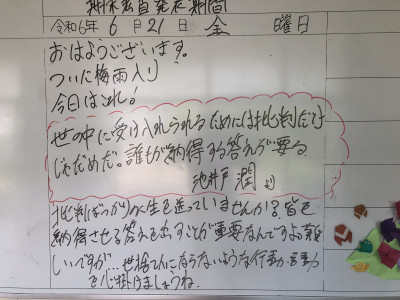 期末練習発表期間
令和6年 6月 21日 金 曜日
おはようございます。
ついに梅雨入り
今日はこれ!
世の中に受け入れられるためには批判だけ
じゃだめだ。誰もが納得する答えが要る。
池井戸 潤 より
批判ばっかりの人生を送っていませんか?皆を
納得させる答えを出すことが重要なんですよね難
しいですが…世捨て人にならないような行動・言動
を心掛けましょうね。